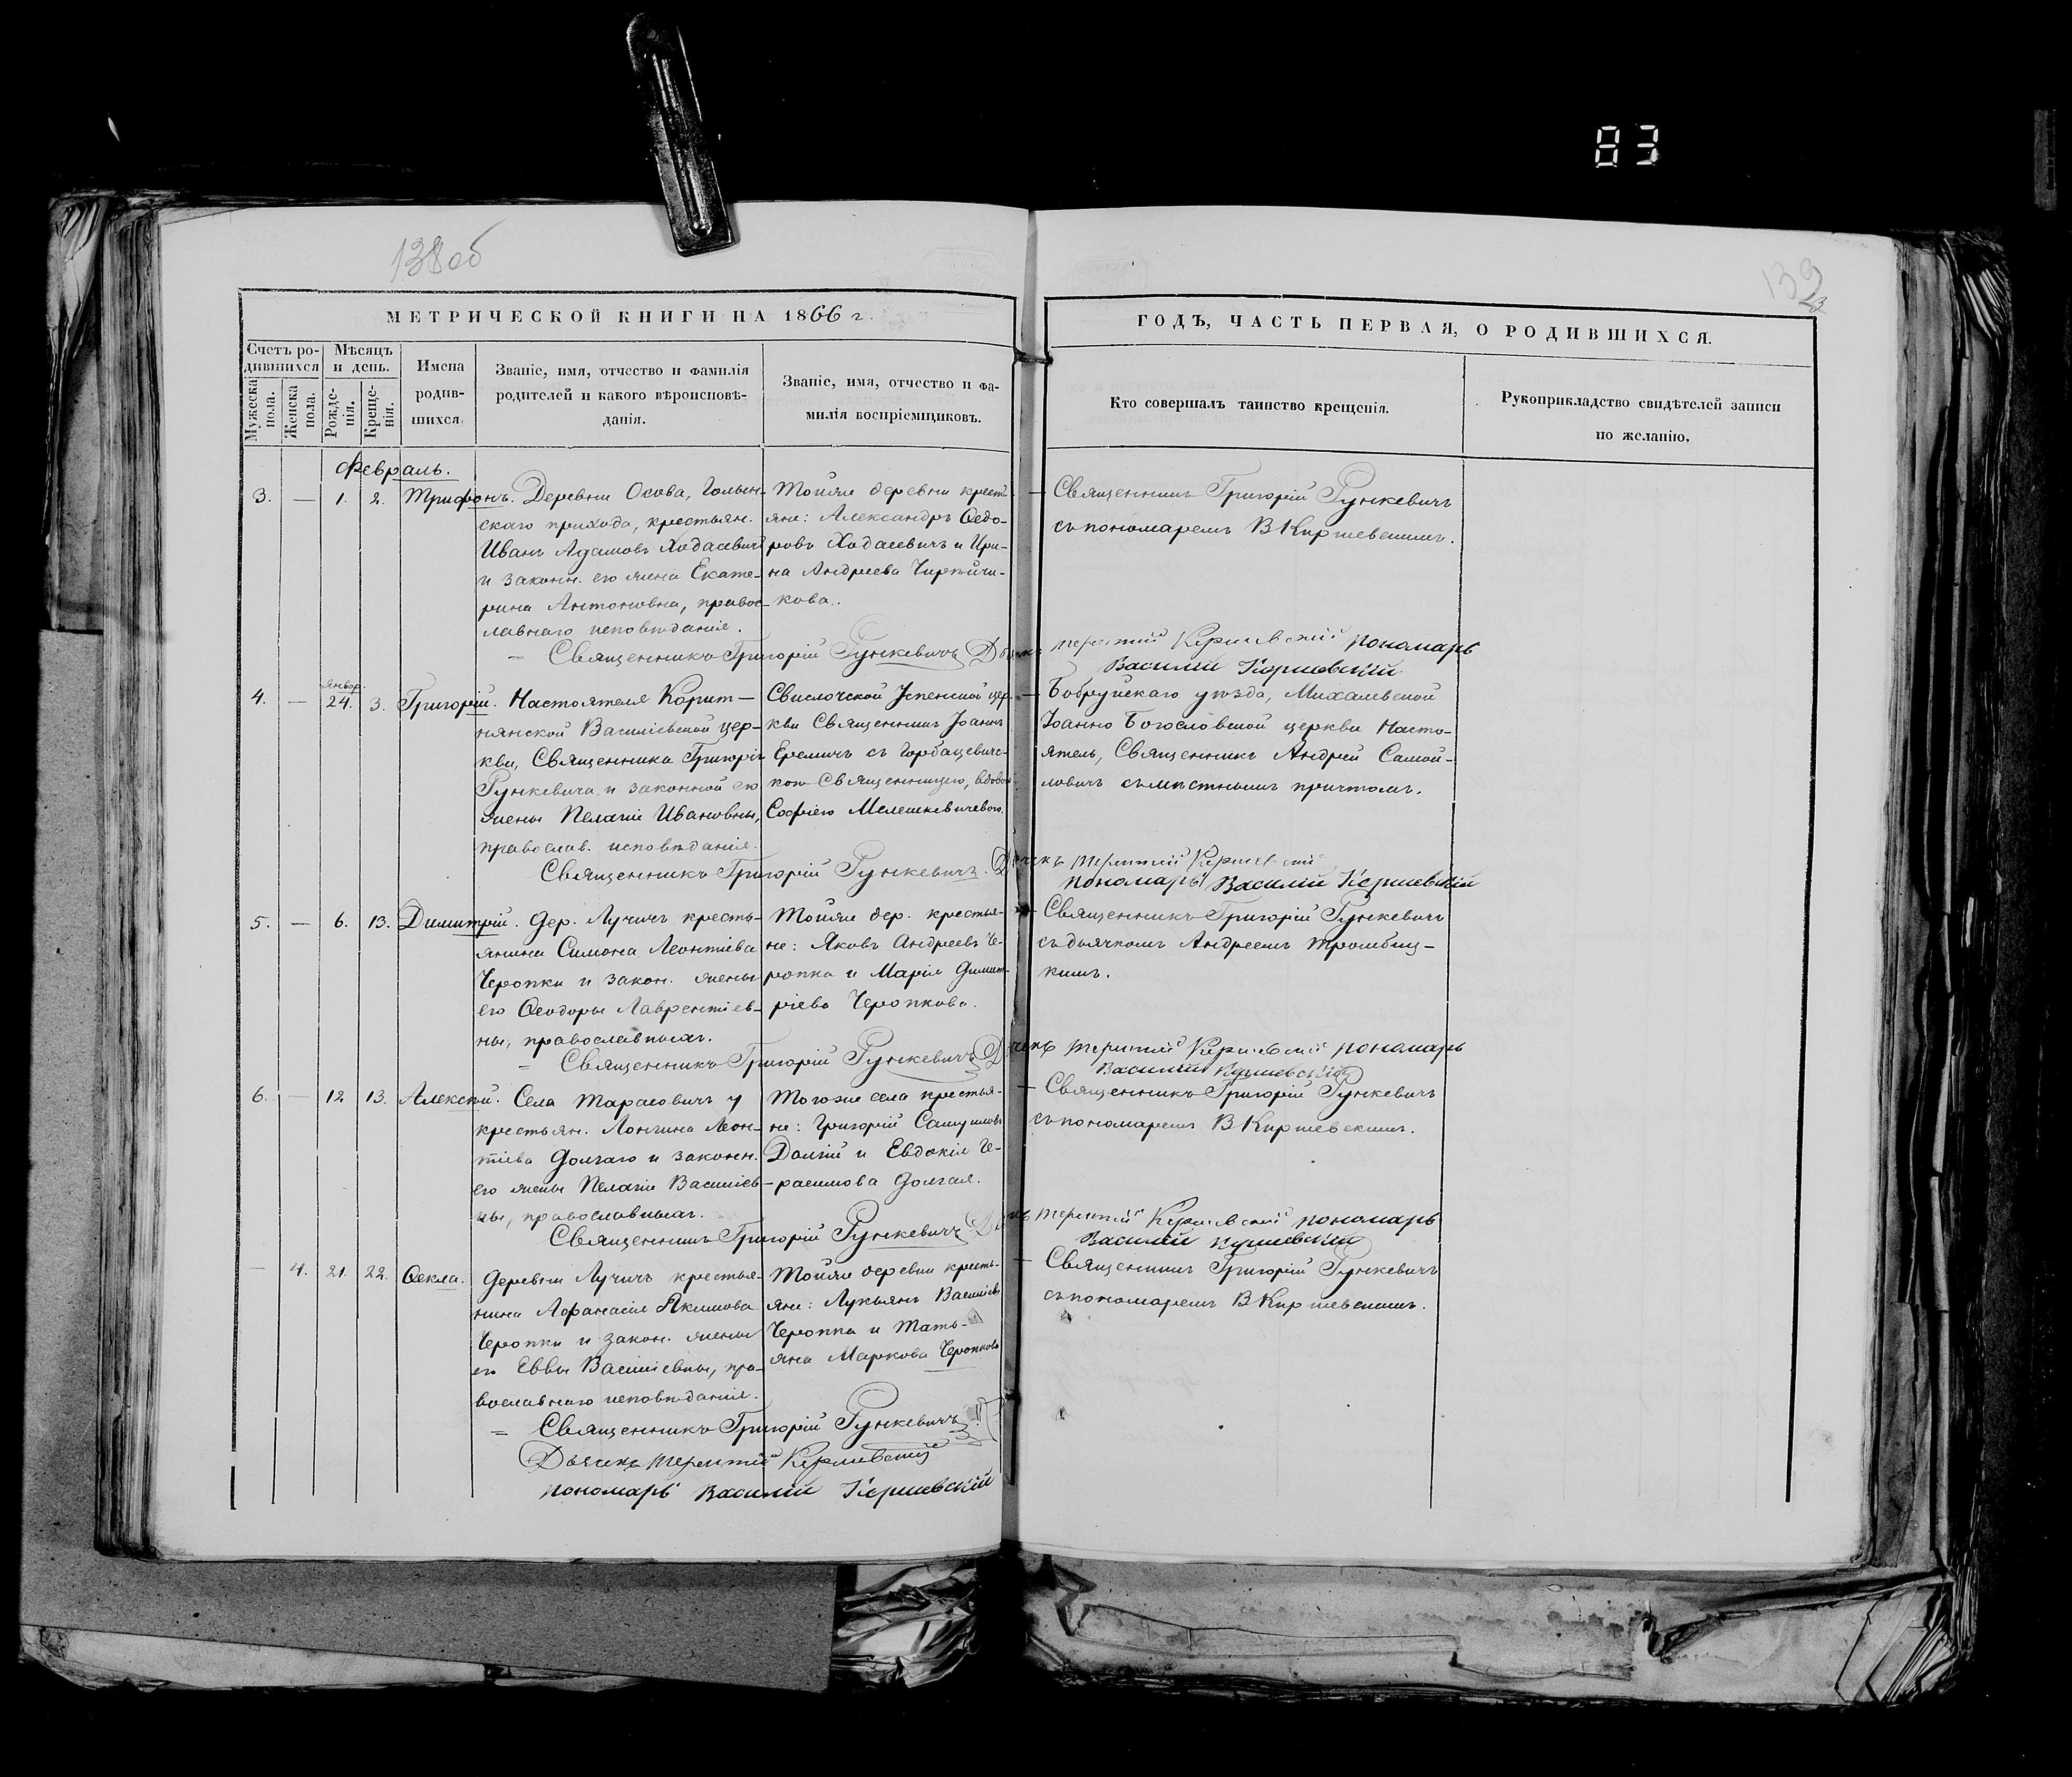 83
138об
139
23
МЕТРИЧЕСКОЙ КНИГИ НА 1866 г.
Счетъ ро-
дившихся
Мужеска
пола.
Женска
пола.
Мѣсяцъ
и день.
Рожде-
нія.
Креще-
нія.
Имена
родив-
шихся.
Званіе, имя, отчество и фамилія
родителей и какого вѣроисповѣ-
данія.
Званіе, имя, отчество и фа-
милія воспріемщиковъ.
ГОДЪ, ЧАСТЬ ПЕРВАЯ, О РОДИВШИХСЯ.
Кто совершалъ таинство крещенія.
Рукоприкладство свидѣтелей записи
по желанію.
Февраль.
3. — 1. 2. Трифонъ.
Деревни Осова, Голын-
скаго прихода, крестьян.
Иванъ Адамовъ Ходасевичъ
и законн. его жена Екате-
рина Антоновна, правос-
лавнаго исповѣданія.
Тойже деревни крестья-
яне: Александръ Ѳедо-
ровъ Ходасевичъ и Ири-
на Андреева
кова.
Священникъ Григорій Рункевичъ
съ пономаремъ В Киршевскимъ.
Священникъ Григорій Рункевичъ Дьячекъ Терентій Киршевскій пономарь
Василій Киршевскій
4. — Январ. 24. 3. Григорій.
Настоятеля Корит-
нянской Василіевской цер-
кви, Священника Григорія
Рункевича и законной его
жены Пелагіи Ивановны,
православ. исповѣданія.
Свислочской Успенской цер-
кви Священникъ Іоаннъ
Еремичъ съ Горбацевичс-
кою Священницею, вдовою
Софіею Мелешкевичевою.
Бобруйскаго уѣзда, Михалевской
Іоанно Богословской церкви Насто-
ятель, Священникъ Андрей Самой-
ловичъ съ мѣстнымъ причтомъ.
Священникъ Григорій Рункевичъ. Дьячекъ Терентій Киршевскій
пономарь Василій Киршевскій
5. — 6. 13. Димитрій.
Дер. Лучичъ кресть-
янина Симона Леонтіева
Черопки и закон. жены
его Ѳеодоры Лаврентіев-
ны, православныхъ.
Тойже дер. крестья-
не: Яковъ Андреевъ Че-
ропка и Марія Димит-
ріева Черопкова.
Священникъ Григорій Рункевичъ
съ дьячкомъ Андреемъ Тромбиц-
кимъ.
Священникъ Григорій Рункевичъ Дьячекъ Терентій Киршевскій пономарь
Василій Киршевскій
6. — 12 13. Алексѣй.
Села Тарасовичъ у
крестьян. Лонгина Леон-
тіева Долгаго и законн.
его жены Пелагіи Василіев-
ны, православныхъ.
Тогоже села крестья-
не: Григорій Самуиловъ
Долгій и Евдокія Ге-
расимова Долгая.
Священникъ Григорій Рункевичъ
съ пономаремъ В Киршевскимъ.
Священникъ Григорій Рункевичъ Дьячекъ Терентій Киршевскій пономарь
Василій Киршевскій
— 4. 21. 22. Ѳекла.
Деревни Лучичъ крестья-
нина Афанасія Якимова
Черопки и закон. жены
его Еввы Василіевны, пра-
вославнаго исповѣданія.
Тойже деревни кресть-
яне: Лукьянъ Василіевъ
Черопка и Тать-
яна Маркова Черопкова
Священникъ Григорій Рункевичъ
съ пономаремъ В Киршевскимъ.
Священникъ Григорій Рункевичъ
Дьячекъ Терентій Киршевскій
пономарь Василій Киршевскій